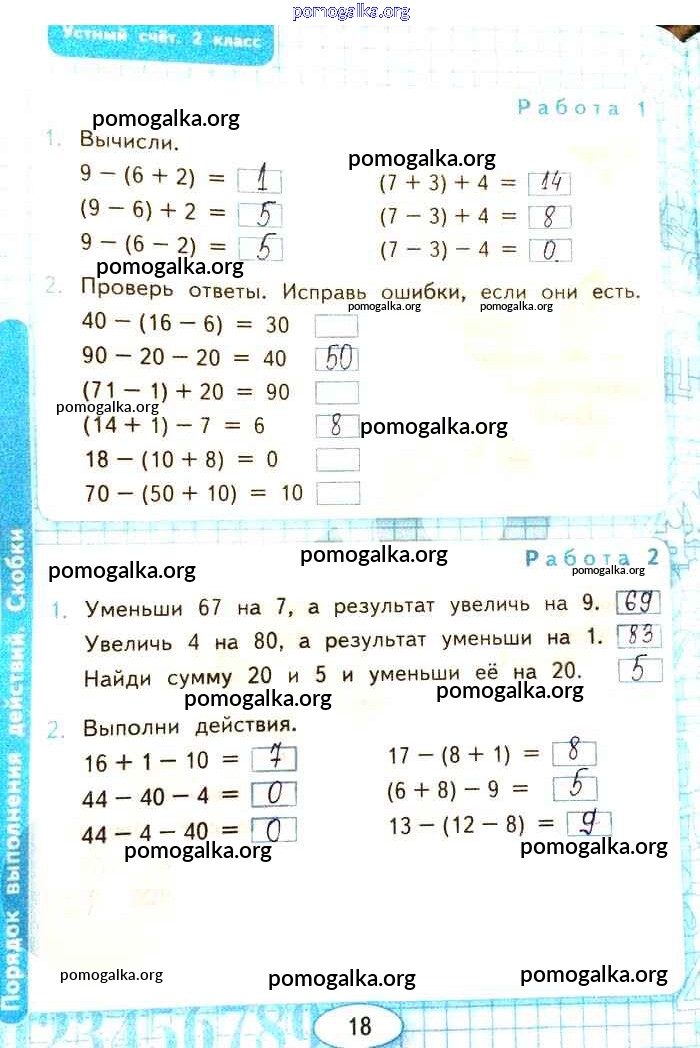 pomogalka.org
Устный счёт. 2 класс
Работа 1
pomogalka.org
1. Вычисли.
pomogalka.org
9 − (6 + 2) = 1 (7 + 3) + 4 = 14
(9 − 6) + 2 = 5 (7 − 3) + 4 = 8
9 − (6 − 2) = 5 (7 − 3) − 4 = 0
pomogalka.org
2. Проверь ответы. Исправь ошибки, если они есть.
pomogalka.org pomogalka.org
40 − (16 − 6) = 30
90 − 20 − 20 = 40 50
(71 − 1) + 20 = 90
pomogalka.org
(14 + 1) − 7 = 6 8 pomogalka.org
18 − (10 + 8) = 0
70 − (50 + 10) = 10
pomogalka.org Работа 2
pomogalka.org pomogalka.org
1. Уменьши 67 на 7, а результат увеличь на 9. 69
Увеличь 4 на 80, а результат уменьши на 1. 83
Найди сумму 20 и 5 и уменьши её на 20. 5
pomogalka.org pomogalka.org
2. Выполни действия.
16 + 1 − 10 = 7 17 − (8 + 1) = 8
44 − 40 − 4 = 0 (6 + 8) − 9 = 5
44 − 4 − 40 = 0 13 − (12 − 8) = 9
pomogalka.org pomogalka.org
pomogalka.org pomogalka.org pomogalka.org
Порядок выполнения действий. Скобки
123456789
18